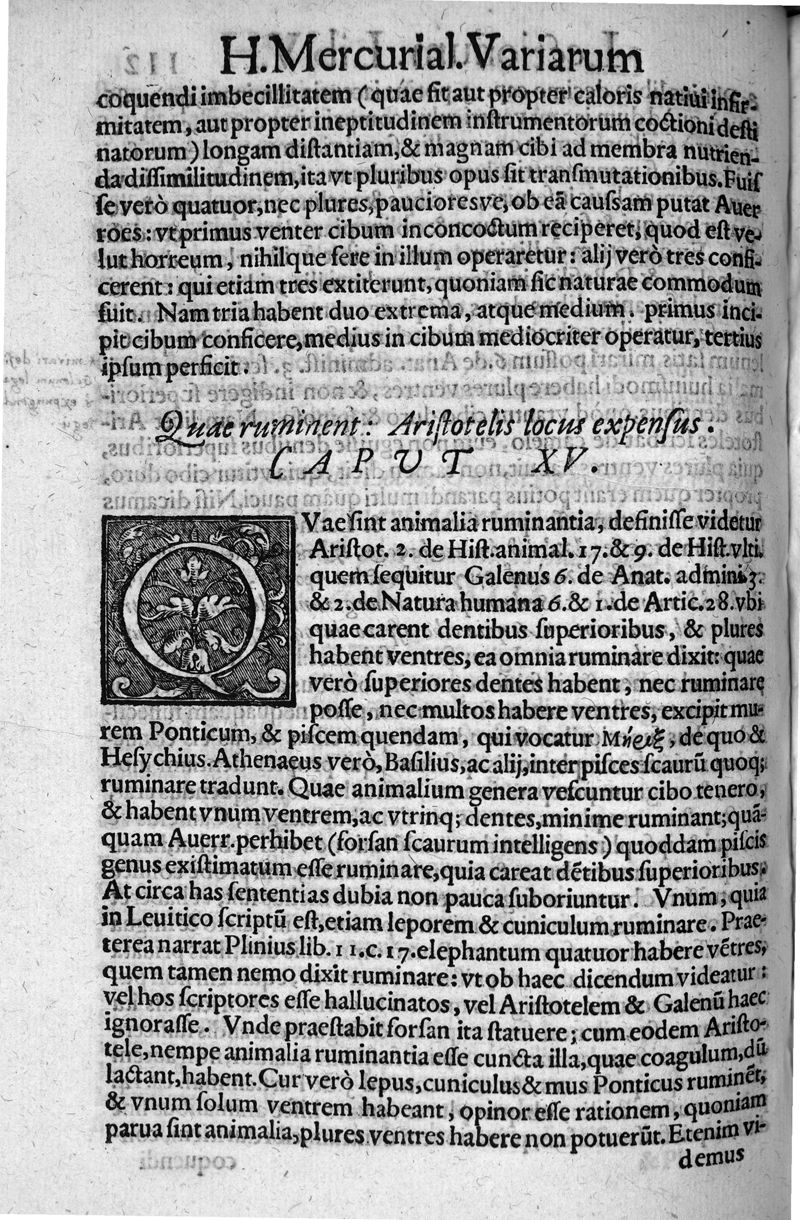 H. Mercurial. Variarum
coquendi imbecillitatem (quae fit aut propter caloris natiui infir-
mitatem, aut propter ineptitudinem instrumentorum coctioni desti
natorum) longam distantiam, & magnam cibi ad membra nutrien-
da dissimilitudinem, ita vt pluribus opus sit transmutationibus. Fuis
se verò quatuor, nec plures, paucioresve, ob eā caussam putat Auer
roes: vt primus venter cibum inconcoctum reciperet, quod est ve-
lut horreum, nihilque fere in illum operaretur: alij verò tres confi-
cerent: qui etiam tres extiterunt, quoniam sic naturae commodum
fuit. Nam tria habent duo extrema, atque medium. primus inci-
pit cibum conficere, medius in cibum mediocriter operatur, tertius
ipsum perficit.
Quae ruminent: Aristotelis locus expensus.
CAPUT XV.
QVae sint animalia ruminantia, definisse videtur
Aristot. 2. de Hist. animal. 17. & 9. de Hist. vlti.
quem sequitur Galenus 6. de Anat. admini. 3.
& 2. de Natura humana 6. & 1. de Artic. 28. vbi
quae carent dentibus superioribus, & plures
habent ventres, ea omnia ruminare dixit: quae
verò superiores dentes habent, nec ruminare
posse, nec multos habere ventres, excipit mu-
rem Ponticum, & piscem quendam, qui vocatur , de quo &
Hesychius. Athenaeus verò, Basilius, ac alij, inter pisces scarū quoq;
ruminare tradunt. Quae animalium genera vescuntur cibo tenero,
& habent vnum ventrem, ac vtrinq; dentes, minime ruminant; quā-
quam Auerr. perhibet (forsan scaurum intelligens) quoddam piscis
genus existimatum esse ruminare, quia careat dētibus superioribus.
At circa has sententias dubia non pauca suboriuntur. Vnum, quia
in Leuitico scriptū est, etiam leporem & cuniculum ruminare. Prae-
terea narrat Plinius lib. 11. c. 17. elephantum quatuor habere vētres,
quem tamen nemo dixit ruminare: vt ob haec dicendum videatur:
vel hos scriptores esse hallucinatos, vel Aristotelem & Galenū haec
ignorasse. Vnde praestabit forsan ita statuere; cum eodem Aristo-
tele, nempe animalia ruminantia esse cuncta illa, quae coagulum, dū
lactant, habent. Cur verò lepus, cuniculus & mus Ponticus ruminēt,
& vnum solum ventrem habeant, opinor esse rationem, quoniam
parua sint animalia, plures ventres habere non potuerūt. Etenim vi-
demus